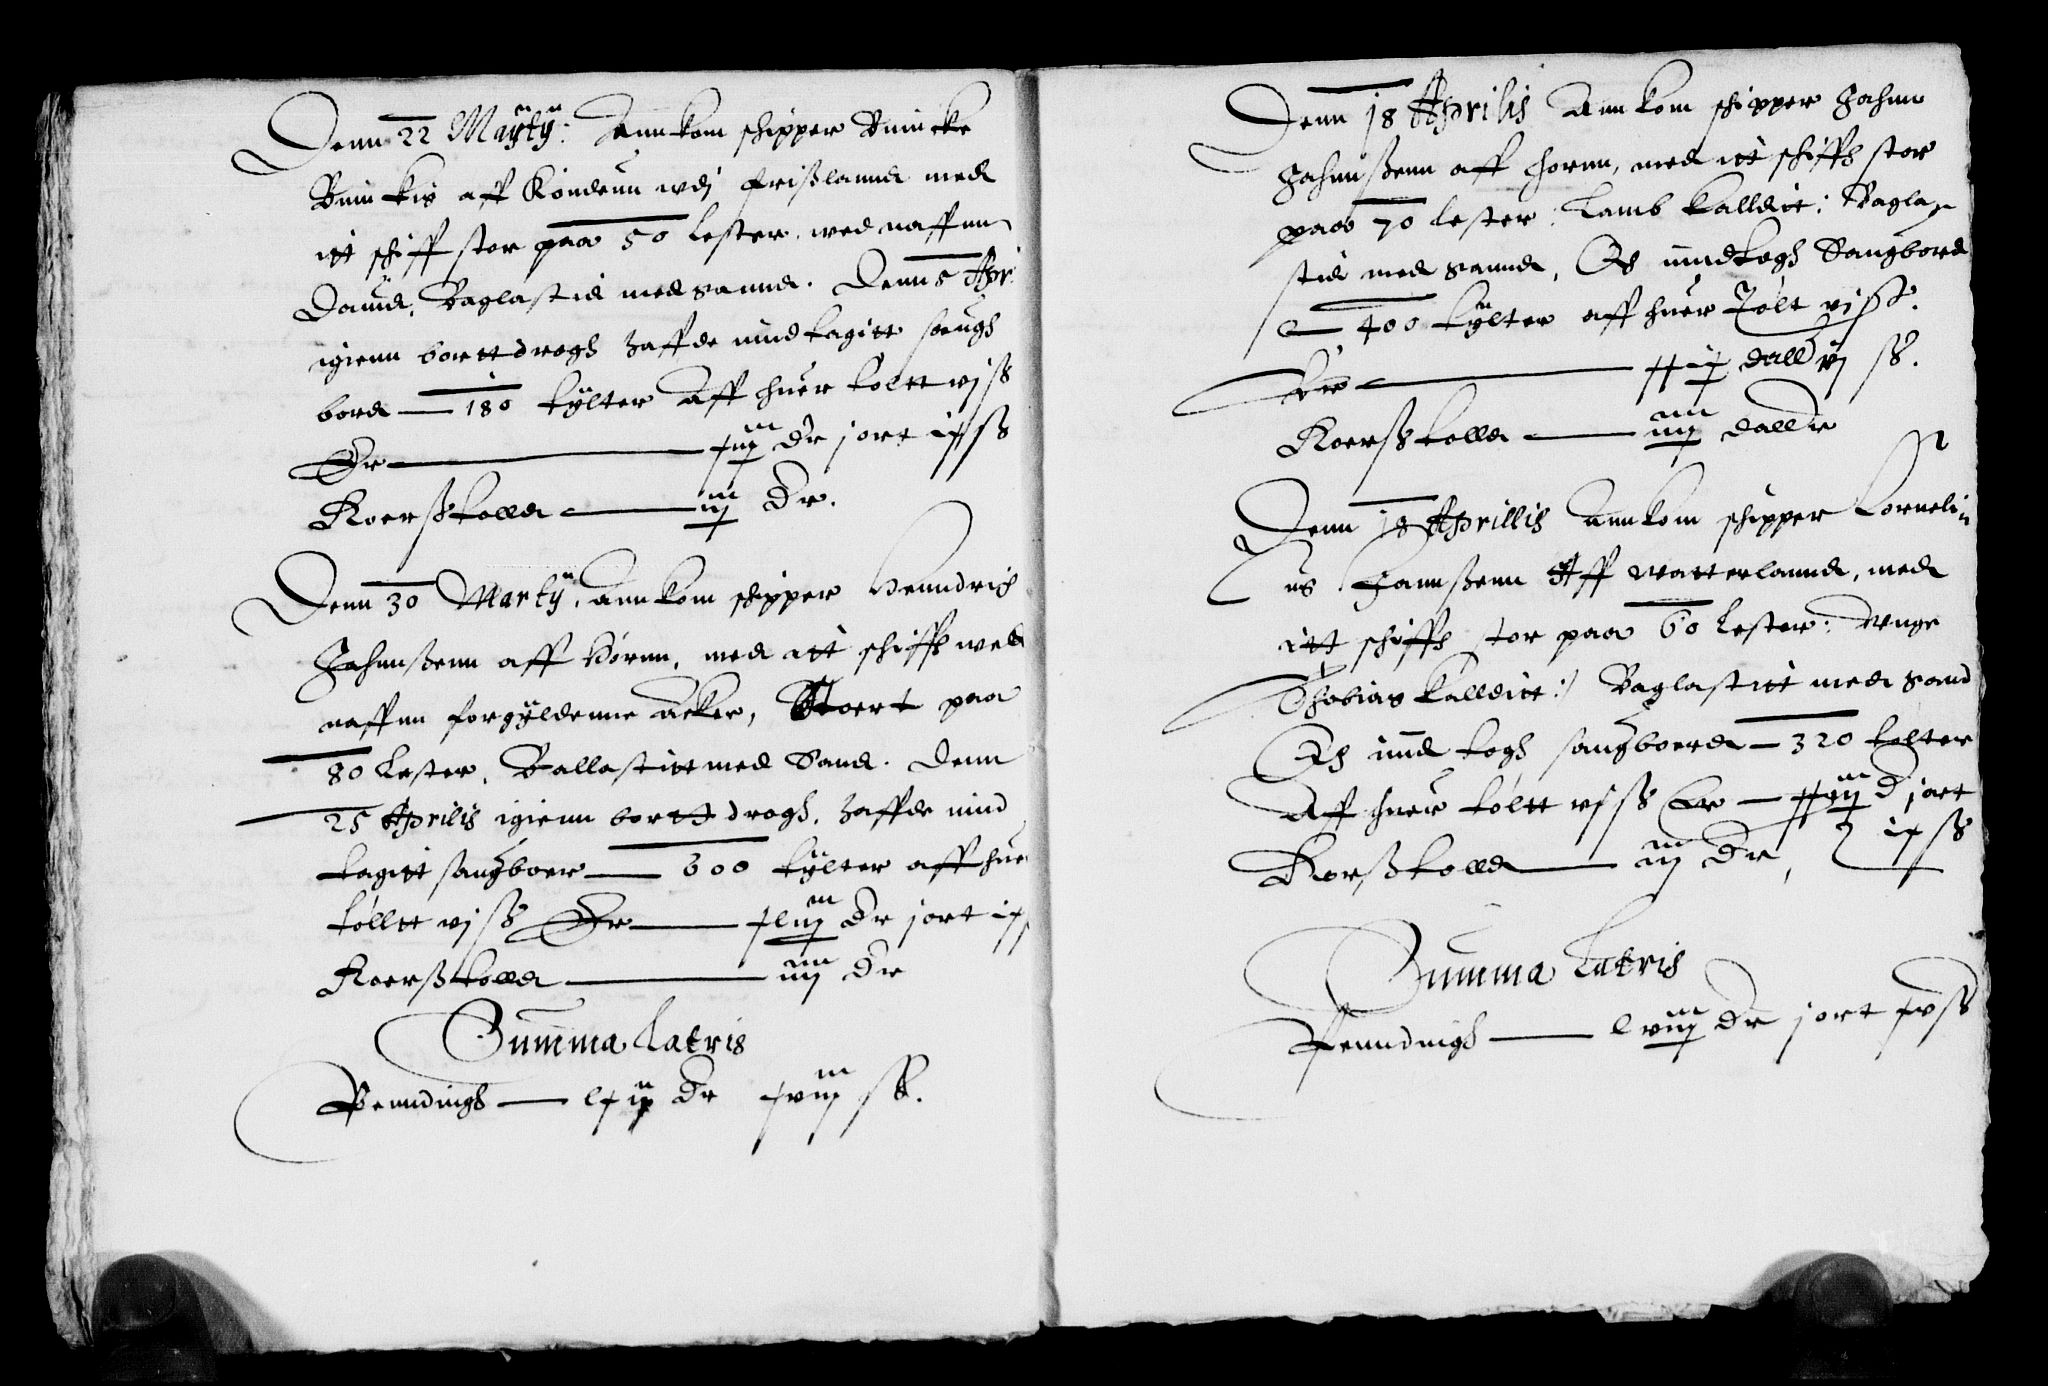 Denn 22 Maÿtÿ: Annkom schipper Buincke
Buinkis aff Kondenn wdj Frißlannd med
itt schiff stor paa 50 lester, wed naffnn
Dauid, Baglastid med sannd. Denn 5 Apr:
igienn bortt drogh haffde inndtagitt saugh
bord — 180 tÿlter Aff huer toltt vj ß
Er — xiij dr j ort ix ß
Koerßtolld — iij dr.
Denn 30 Martÿ, Annkom schipper Henndrich
Jahnnßenn aff Hornn, med itt schiffh wed
naffnn forgÿldenne Acker, Stoert paa
80 Lester, Ballastitt med Sand. Denn
25 Aprilis igienn bortt drogh, haffde innd
tagitt saugboer — 600 tÿlter aff huer
tölltt vj ß Er — xliij dr j ort ix ß
Koerßtolld — iiij dr
Summa Latris
Penndingh — lxij dr xviij ß.
Denn 18 Aprilis Annkom schipper Jahnn
Jahnnßenn aff Hornn, med itt schiffh stor
paa 70 lester, Lamb kalldit: Bagla=
stid med sannd, Och inndtogh Saugbord
— 400 tÿlter aff huer Tolt vj ß.
Er — xxix dall vj ß.
Koerßtolld — iiij dallr
Denn 18 Aprillis Annkom schipper Corneli=
us Hannßenn Aff Watterlannd, med
itt schiffh stor paa 60 lester: Unge
Thobias kallditt:/ Baglastitt med sand
Och innd togh saugboerd — 320 tolter
Aff huer töltt vj ß Er — xxiij d j ort
ix ß
Korßtolld — iij dr,
Summa Latris
Penndingh — lviij dr j ort xv ß